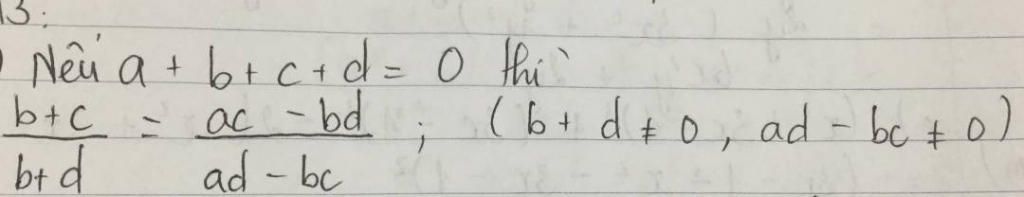 13:
) Nếu a + b + c + d = 0 thì
\frac{b+c}{b+d} = \frac{ac - bd}{ad - bc} ; ( b + d ≠ 0 , ad - bc ≠ 0 )